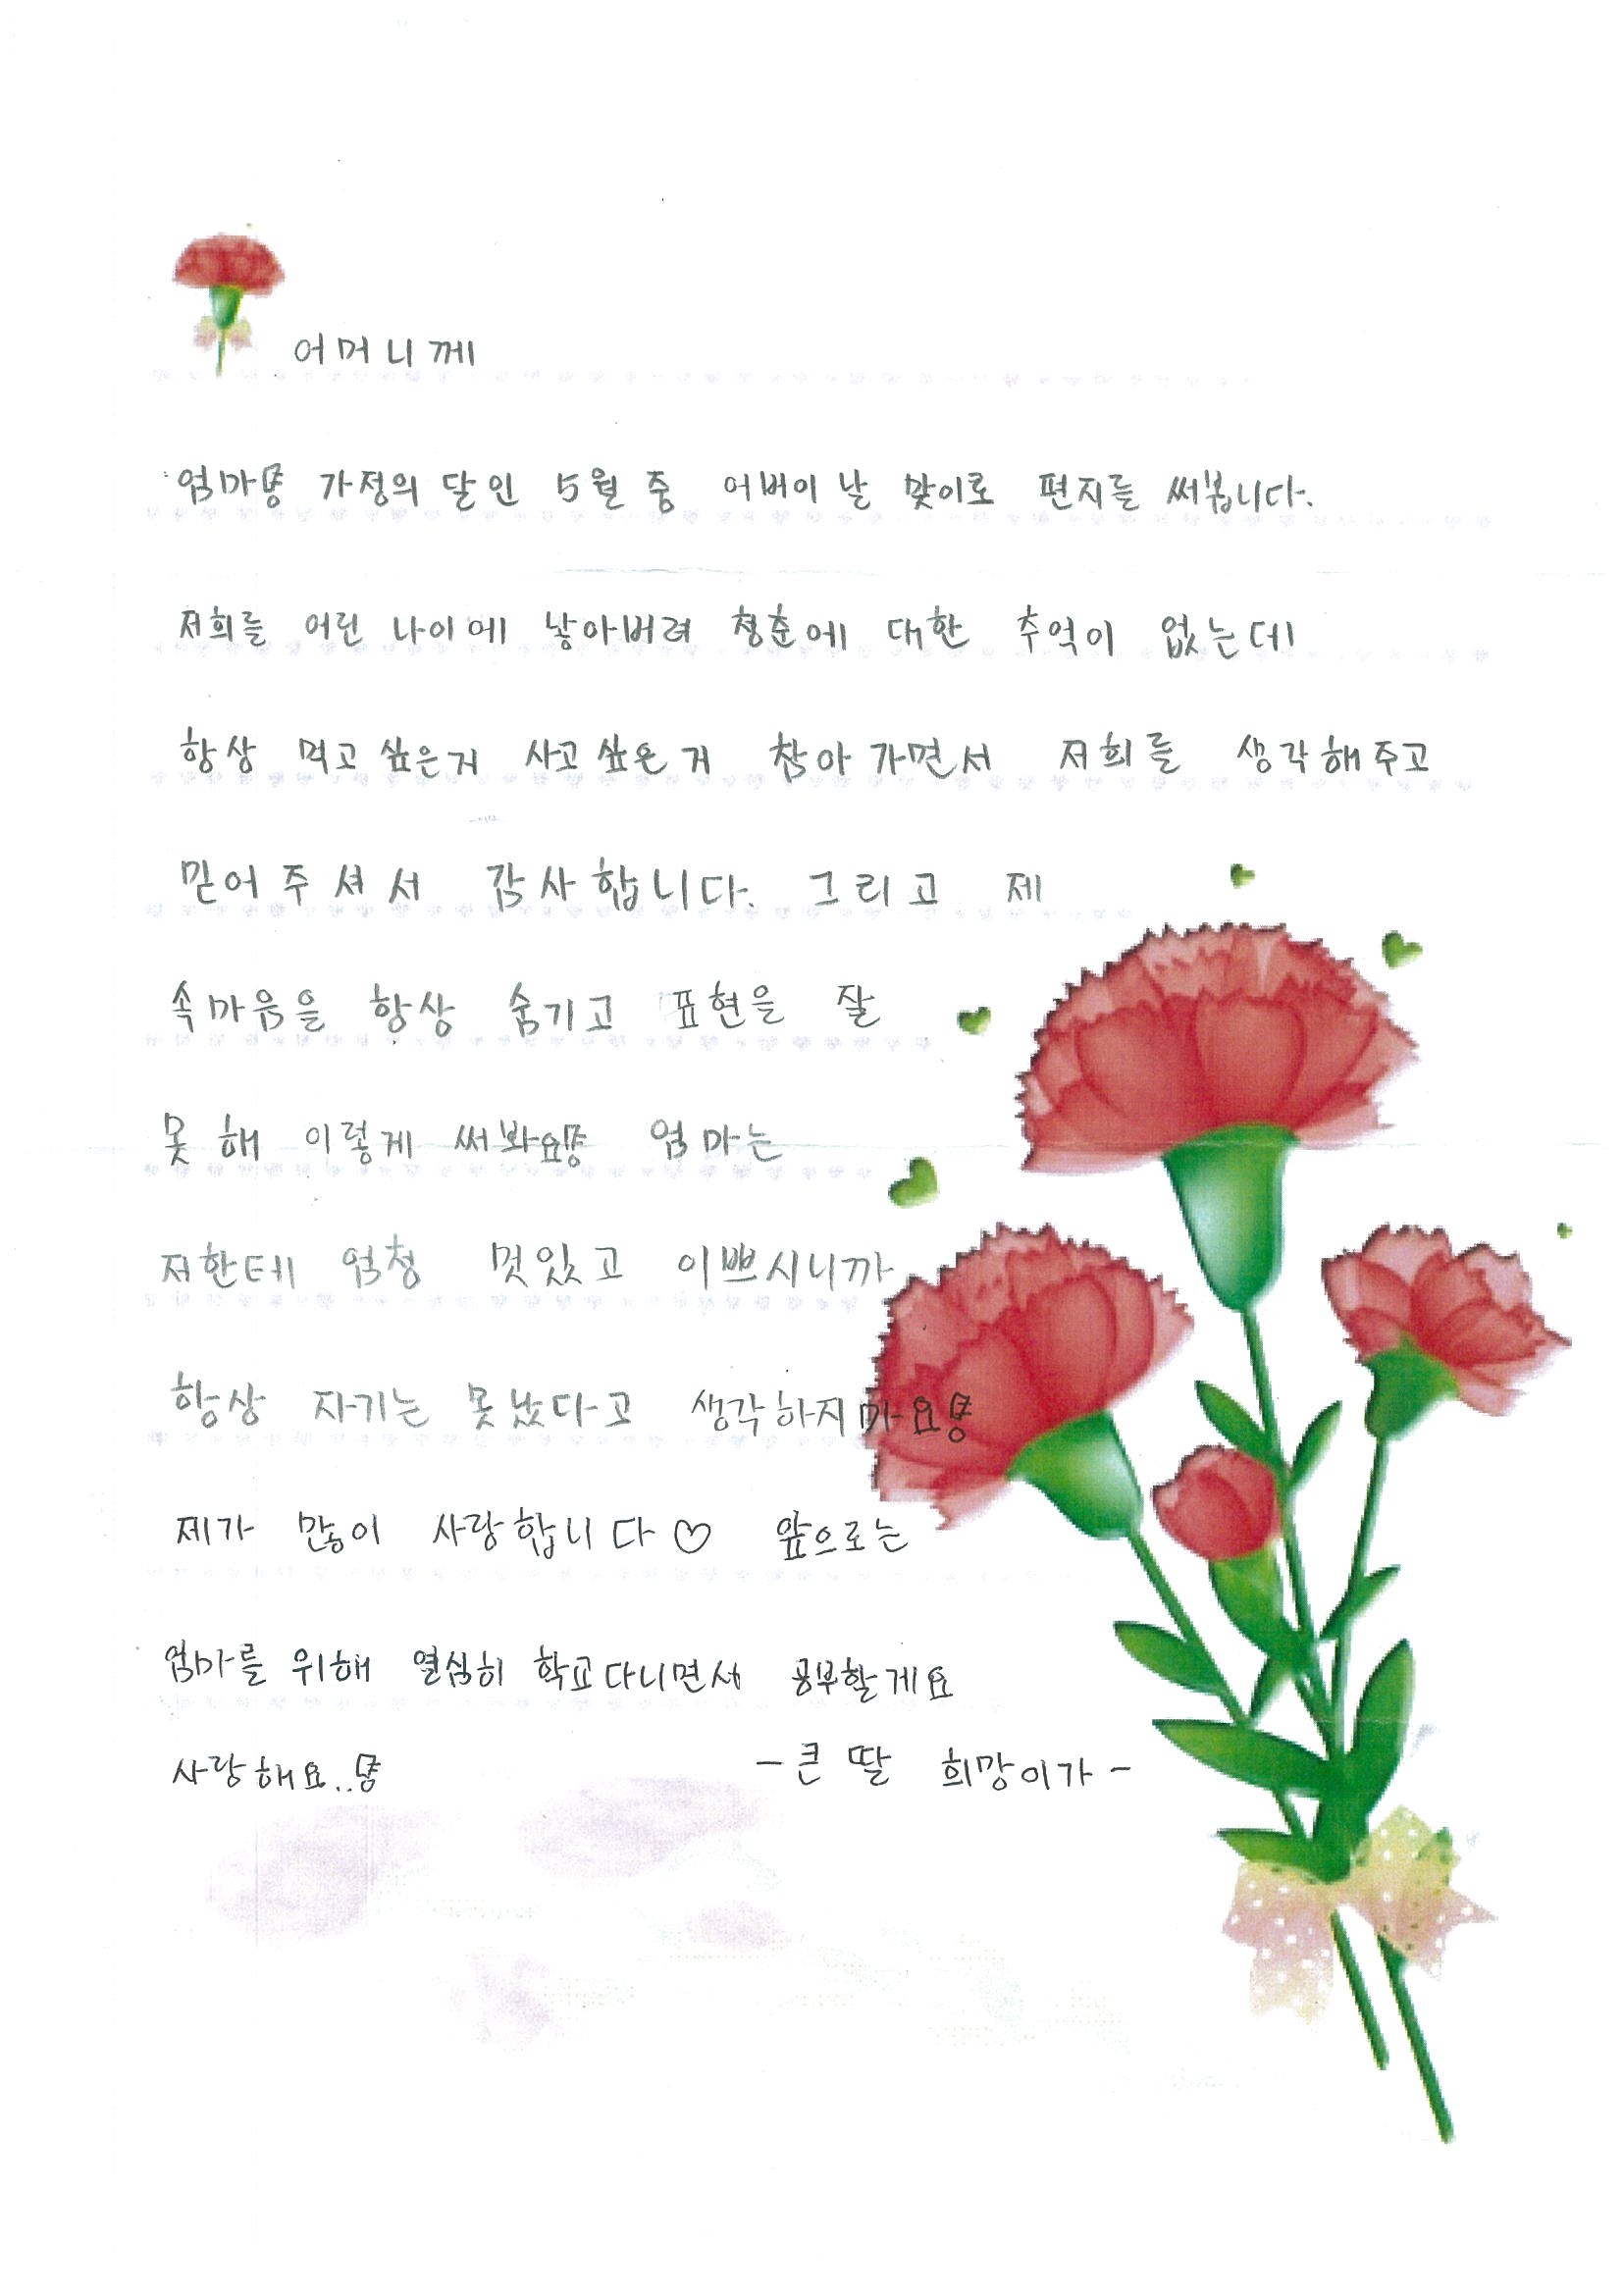 어머니께
엄마 가정의 달인 5월 중 어버이 날 맞이로 편지를 써봅니다.
저희를 어린 나이에 낳아버려 청춘에 대한 추억이 없는데
항상 먹고싶은거 사고싶은거 참아가면서 저희를 생각해주고
믿어주셔서 감사합니다. 그리고 제
속마음을 항상 숨기고 표현을 잘
못해 이렇게 써봐요 엄마는
저한테 엄청 멋있고 이쁘시니까
항상 자기는 못났다고 생각하지마요
제가 많이 사랑합니다♡ 앞으로는
엄마를 위해 열심히 학교다니면서 공부할게요
사랑해요.. -큰 딸 희망이가-